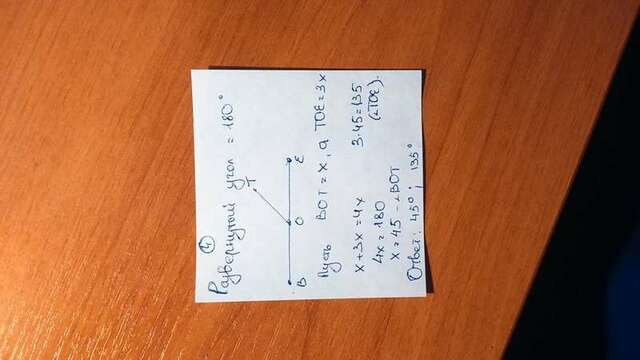 4
Развернутый угол = 180°
T
B O E
Пусть BOT = x, а TOE = 3x
x + 3x = 4x 3·45 = 135
4x = 180 (∠TOE).
x = 45 - ∠BOT
Ответ: 45°; 135°